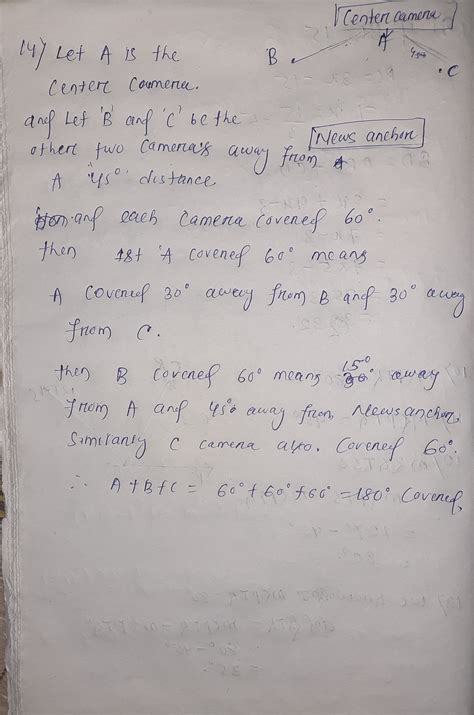 Center camera
A
B
C
14) Let A is the
Center Camera.
and Let 'B' and 'C' be the
News anchor
others two Cameras away from
A 45° distance
and each Camera Covered 60°.
then 1st 'A Covered 60° means
A Covered 30° away from B and 30° away
from C.
then B Covered 60° means 15° away
from A and 45° away from News anchor,
Similarly C camera also. Covered 60°.
∴ A+B+C = 60° + 60° + 60° = 180° Covered,